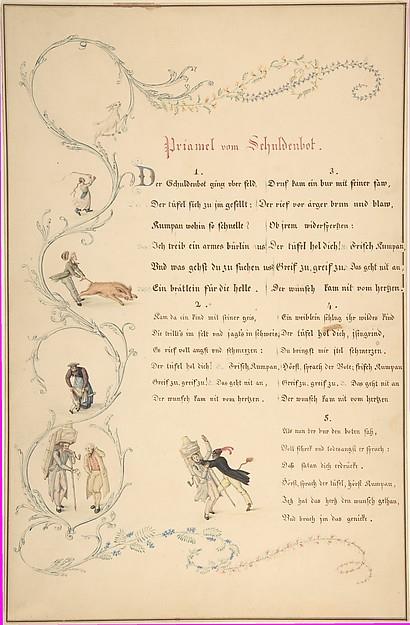 Priamel vom Schuldenbot.
1.
Der Schuldenbot ging vber feld,
Der tüfel sich zu jm gesellt:
Kumpan wohin so schnelle?
Ich treib ein armes bürlin us
Vnd was gehst du zu suchen us
Ein brätlein für die helle.
2.
Kam da ein kind mit seiner geis,
Die willt's im felt vnd jagts in schweis,
Es rief voll angst vnd schmerzen:
Der tüfel hol dich! Frisch Kumpan,
Greif zu, greif zu! Das geht nit an,
Der wunsch kam nit vom hertzen.
3.
Druf kam ein bur mit seiner saw,
Der rief vor ärger brun und blaw,
Ob jrem widersperren:
Der tüfel hol dich! Frisch Kumpan,
Greif zu, greif zu. Das geht nit an,
Der wunsch kam nit vom hertzen.
4.
Ein weiblein schlug ihr wildes kind
Der tüfel hol dich, schwind,
Du bringst mir jtel schmerzen.
Hörst, sprach der Bote, frisch Kumpan,
Greif zu, greif zu. Das geht nit an
Der wunsch kam nit vom hertzen
5.
Als nun der bur den boten sah,
Voll schreck und todtsangst er sprach:
Daß satan dich erdrück.
Hörst, sprach der tüfel, hörst Kumpan,
Der hat das herz den wunsch gethan,
Vnd brach jm das genicke.